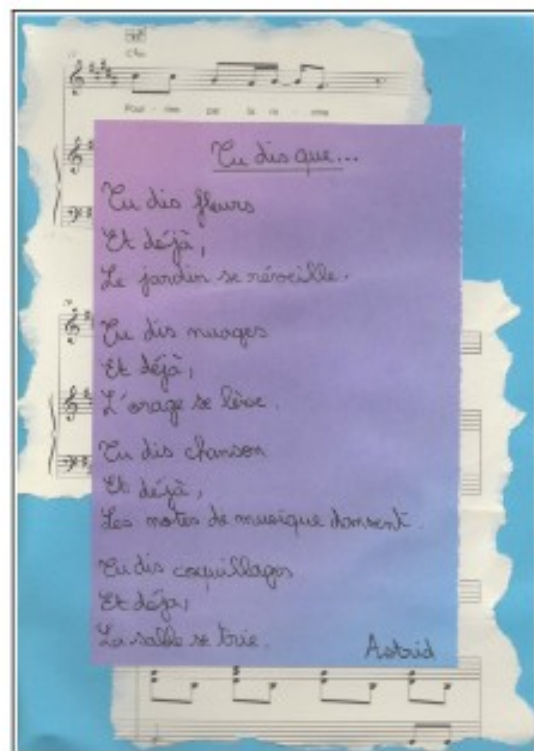 Tu dis que...
Tu dis fleurs
Et déjà,
Le jardin se réveille.
Tu dis nuages
Et déjà,
L'orage se lève.
Tu dis chanson
Et déjà,
Les notes de musique dansent.
Tu dis coquillages
Et déjà,
La salle se trie.
Astrid